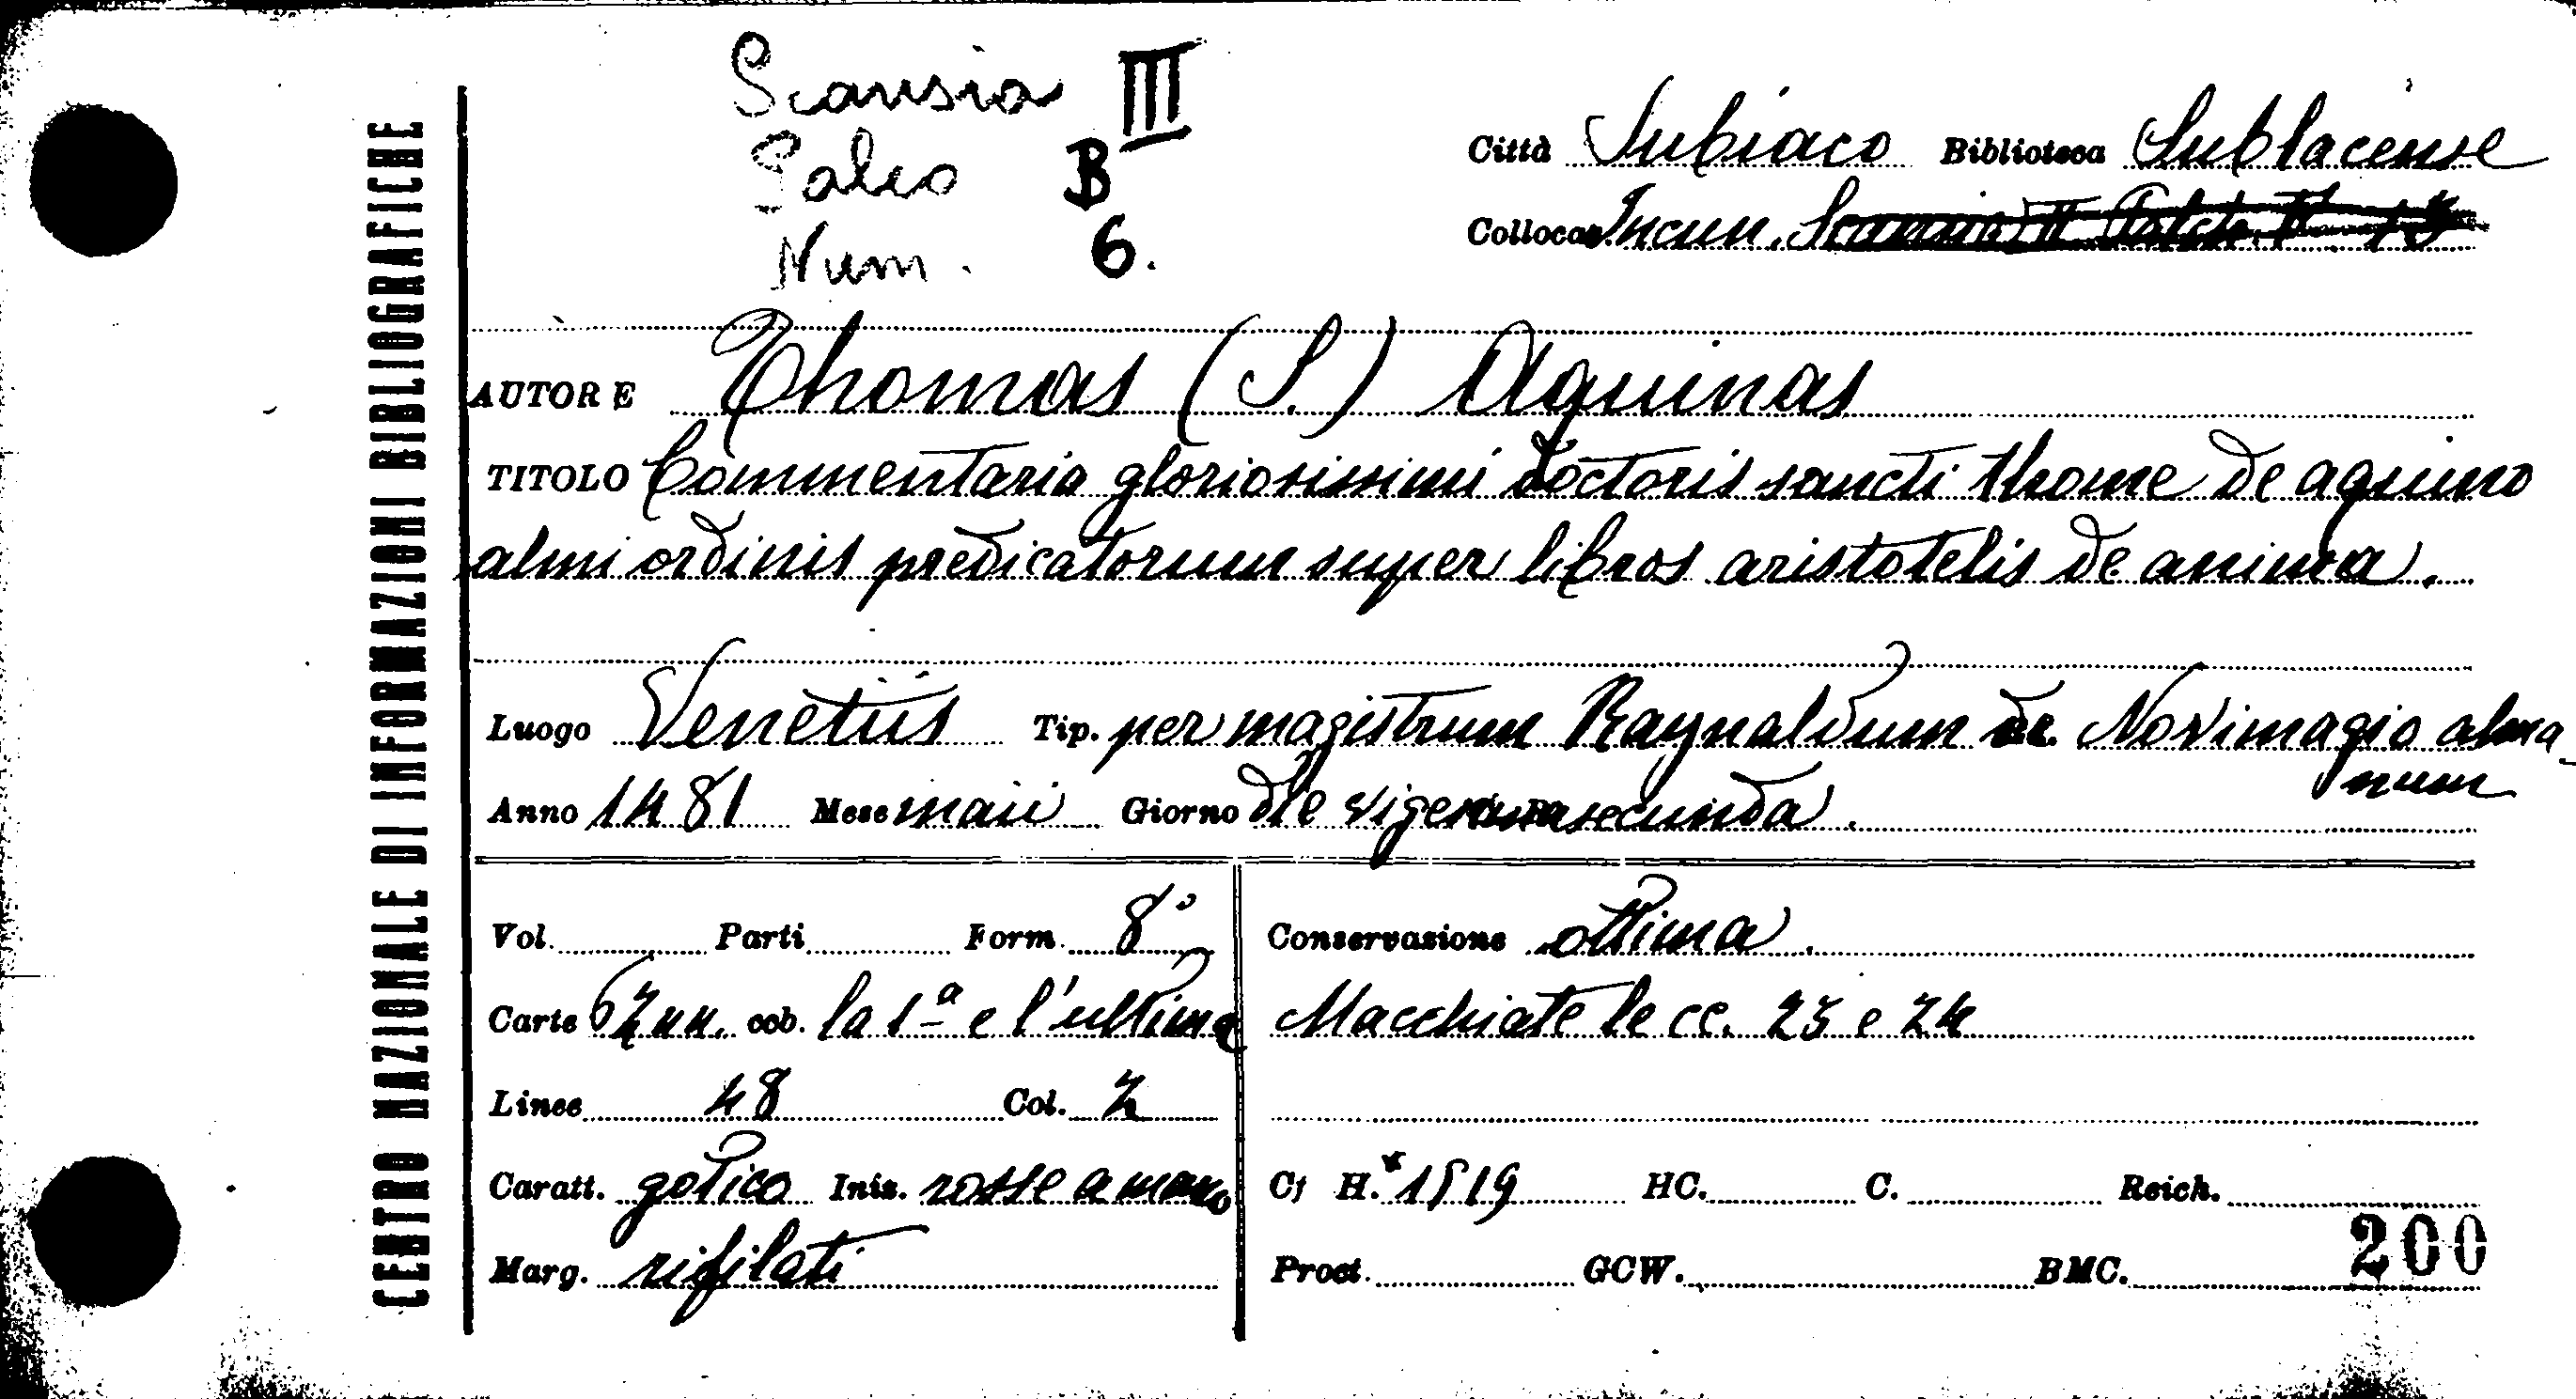 Scansia III
Palco B
Num. 6.
Città Subiaco Biblioteca Sublacense
Collocaz. Incun. Scansia II Palch.
AUTORE Thomas (S.) Aquinas
TITOLO Commentaria gloriosissimi doctoris sancti thome de aquino
almi ordinis predicatorum super libros aristotelis de anima.
Luogo Venetiis Tip. per magistrum Raynaldum de Novimagio alma-
num
Anno 1481 Mese maii Giorno die vigesima secunda.
Vol. Parti Form. 8°
Carte 62 nn. cob. la 1ª e l'ultima
Linee 48 Col. 2
Caratt. gotico Iniz. rosse a mano
Marg. rifilati
Conservazione ottima.
Macchiate le cc. 23 e 24
Cf H.* 1519 HC. C. Reich.
Proct. GCW. BMC. 200
CENTRO NAZIONALE DI INFORMAZIONI BIBLIOGRAFICHE